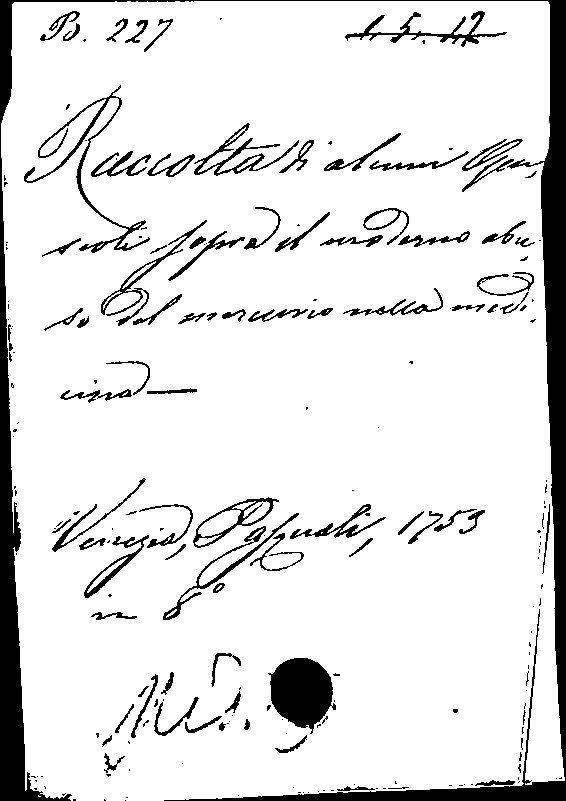 B. 227 1. 5. 12
Raccolta di alcuni Opu-
scoli sopra il moderno abu-
so del mercurio nella medi-
cina —
Venezia, Pasquali, 1753
in 8°
Mis.